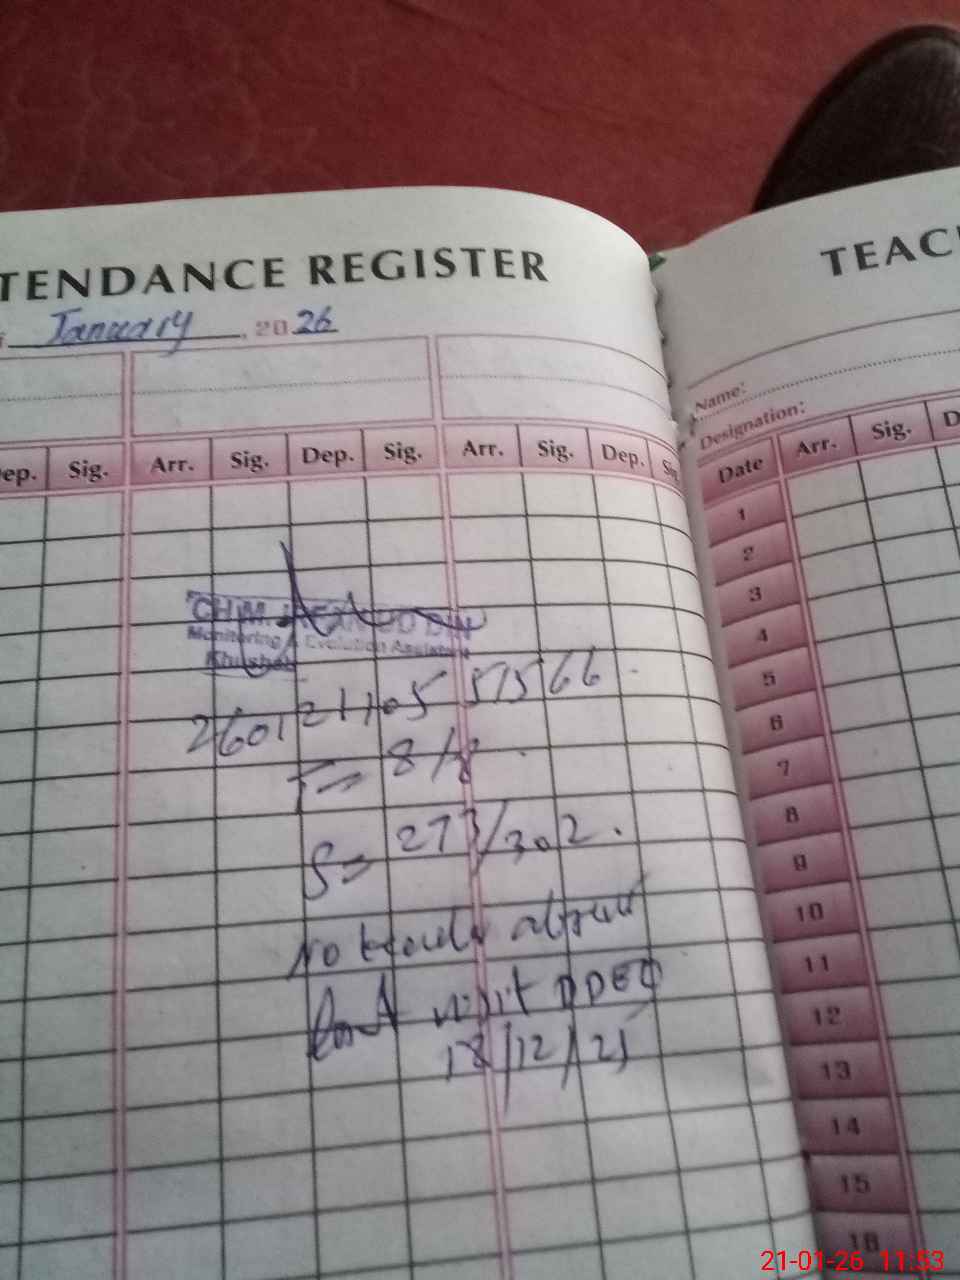 TENDANCE REGISTER
January, 2026
ep. Sig. Arr. Sig. Dep. Sig. Arr. Sig. Dep. Sig
Monitoring & Evalution Assistant
T = 8/8.
S = 273/302.
No teacher absent
Last visit DDEO
18/12/25
TEAC
Name:
Designation:
Date Arr. Sig. D
1
2
3
4
5
6
7
8
9
10
11
12
13
14
15
16
21-01-26 11:53